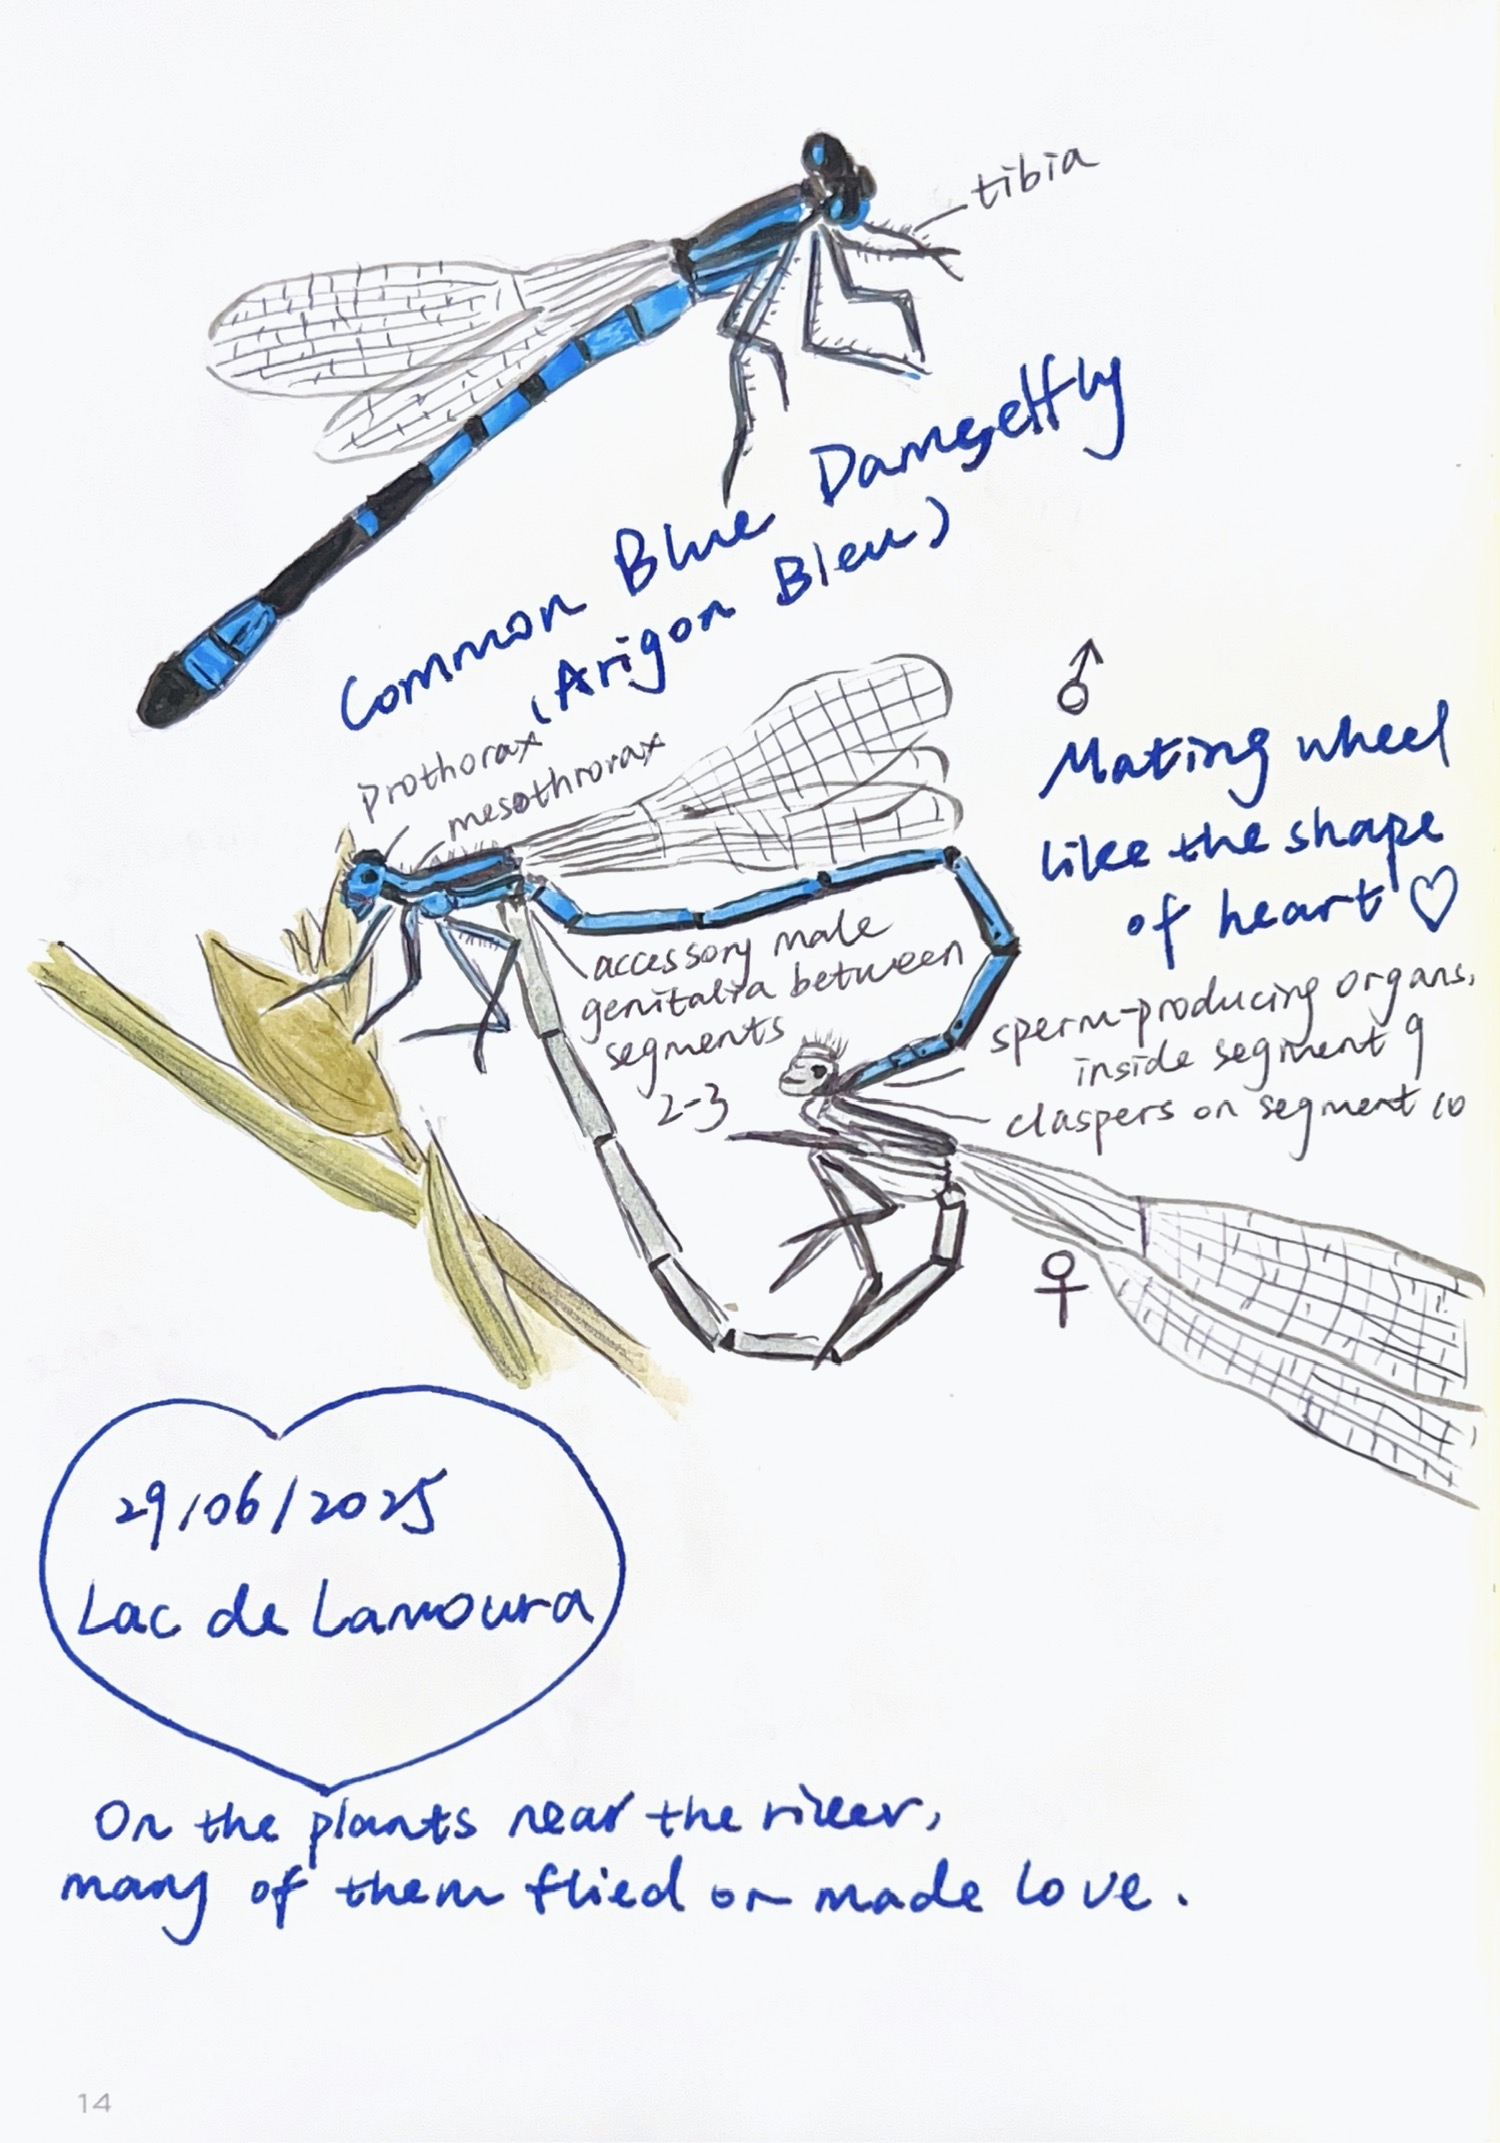 tibia
Common Blue Damselfly
(Arigon Bleu)
prothorax
mesothrorax
♂
Mating wheel
like the shape
of heart ♡
accessory male
genitalia between
segments
2-3
sperm-producing organs,
inside segment 9
claspers on segment 10
♀
29/06/2025
Lac de Lamoura
On the plants near the river,
many of them flied or made love.
14